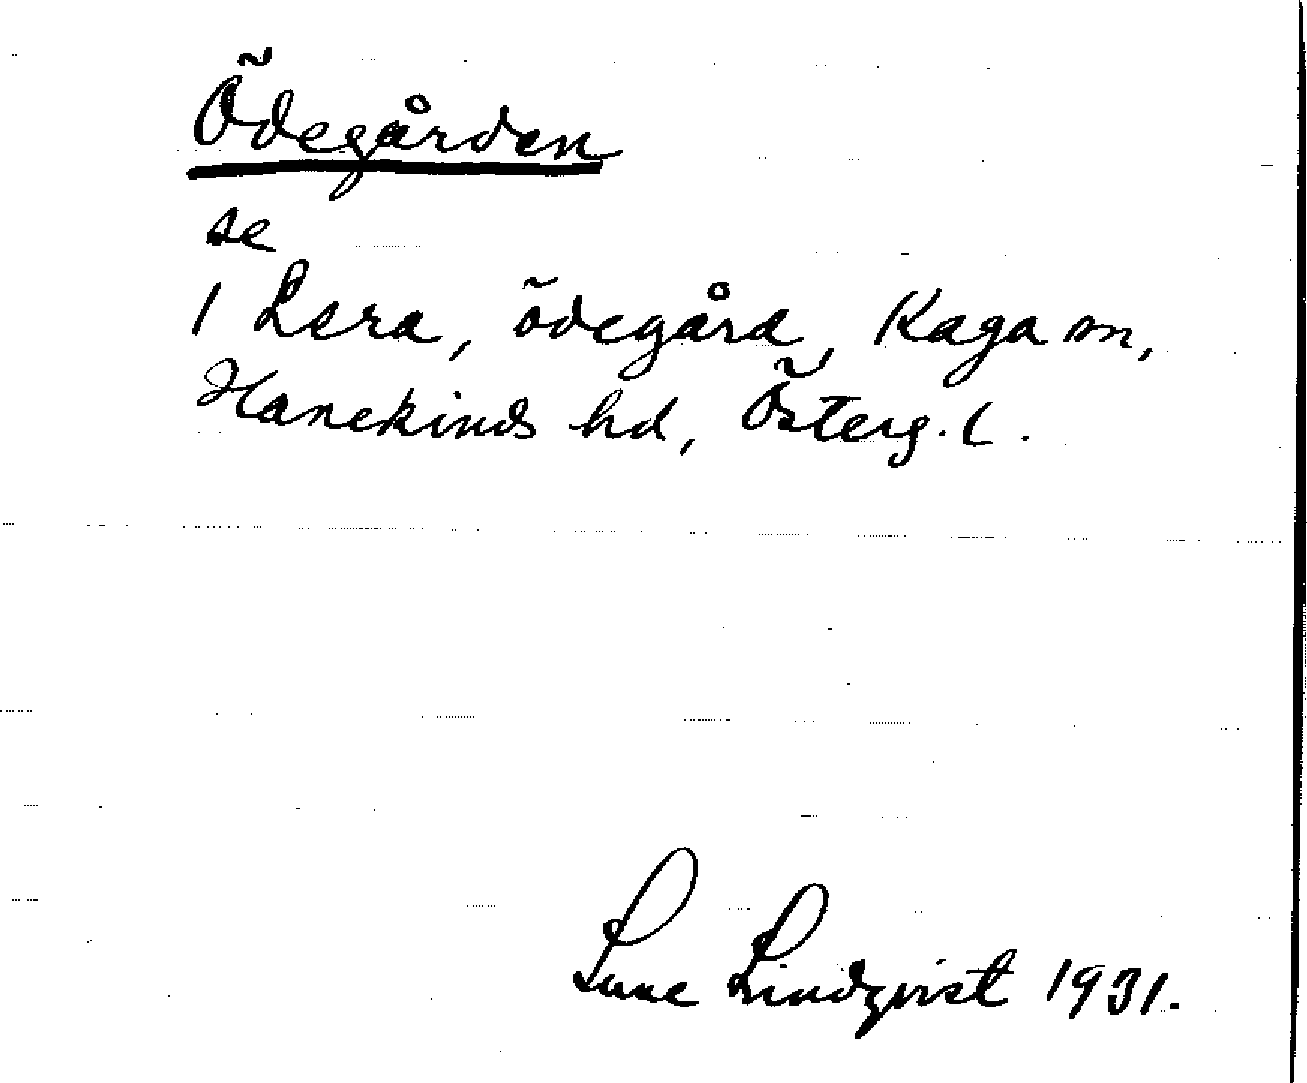 Ödegården
se
1 Lera, ödegård, Kaga sn,
Hanekinds hd, Österg. l.
Sune Lindqvist 1931.